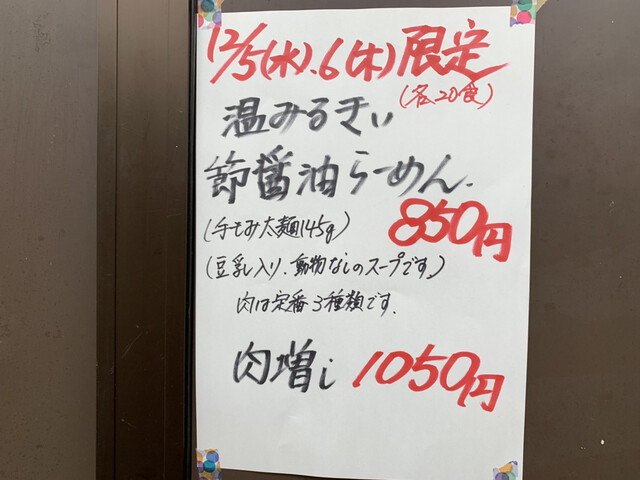 12/5(水)、6(木)限定
(各20食)
温みるきぃ
節醤油らーめん、
850円
(手もみ太麺145g)
(豆乳入り、動物なしのスープです。)
肉は定番3種類です。
肉増し 1050円